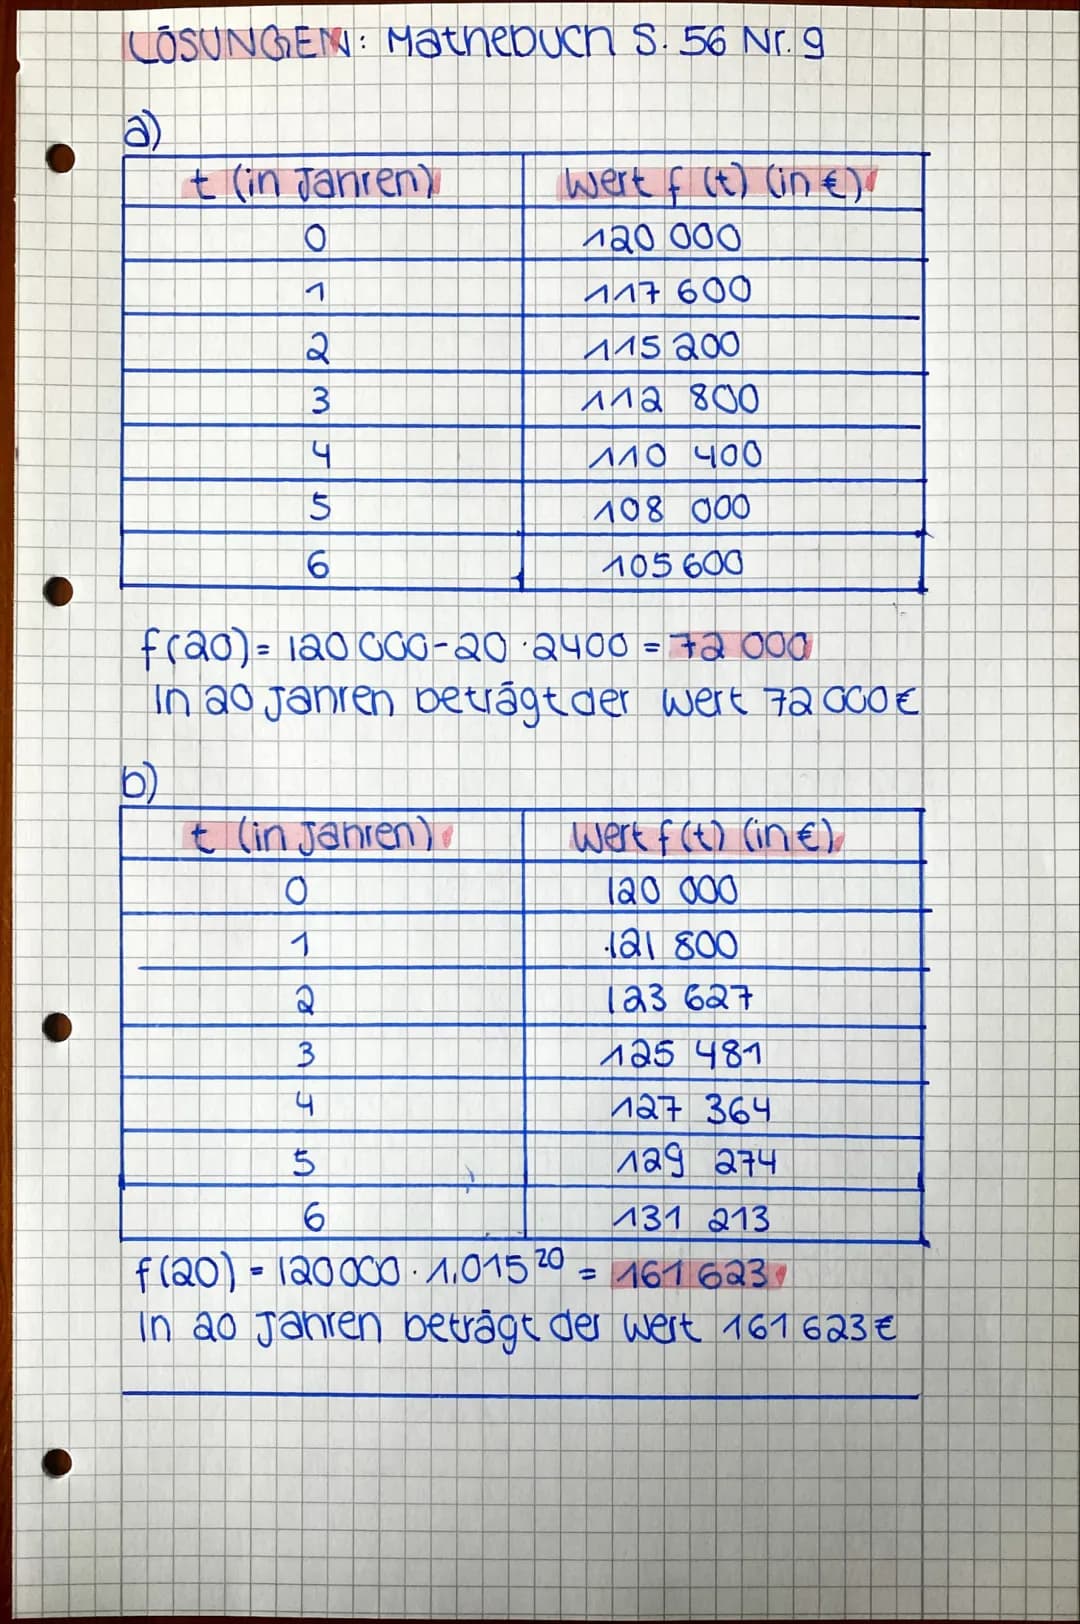 LÖSUNGEN: Mathebuch S. 56 Nr. 9
a)
t (in Jahren) Wert f (t) (in €)
0 120 000
1 117 600
2 115 200
3 112 800
4 110 400
5 108 000
6 105 600
f(20) = 120 000 - 20 · 2400 = 72 000
In 20 Jahren beträgt der Wert 72 000 €
b)
t (in Jahren) Wert f (t) (in €)
0 120 000
1 121 800
2 123 627
3 125 481
4 127 364
5 129 274
6 131 213
f(20) = 120 000 · 1,015²⁰ = 161 623
In 20 Jahren beträgt der Wert 161 623 €